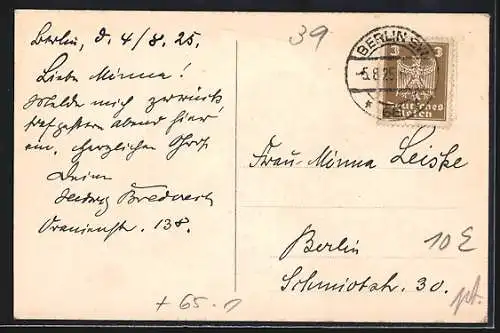 Berlin, d. 4/8. 25.
Liebe Minna!
Melde mich zurück,
abend hier
ein. Herzlichen Gruß
Deine
Hedwig
Oranienstr. 138.
39
BERLIN SW
-5.8.25
3 3
Deutsches
Reich
Frau Minna Leiske
Berlin
Schmidtstr. 30.
10 £
+ 65.-